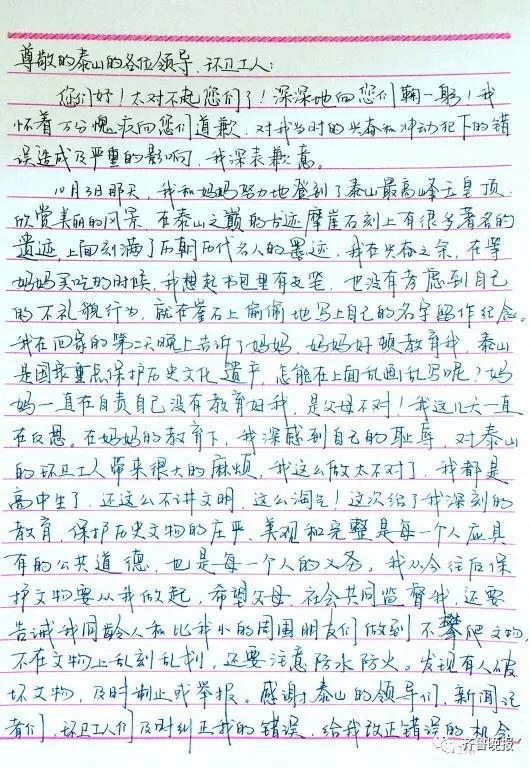 尊敬的泰山的各位领导、环卫工人：
您们好！太对不起您们了！深深地向您们鞠一躬！我
怀着万分愧疚向您们道歉，对我当时的兴奋和冲动犯下的错
误造成及严重的影响，我深表歉意。
10月3日那天，我和妈妈努力地登到了泰山最高峰玉皇顶，
欣赏美丽的风景，在泰山之巅的古迹摩崖石刻上有很多著名的
遗迹，上面刻满了历朝历代名人的墨迹，我在兴奋之余，在等
妈妈买吃的时候，我想起书包里有支笔，也没有考虑到自己
的不礼貌行为，就在崖石上偷偷地写上自己的名字留作纪念。
我在回家的第二天晚上告诉了妈妈，妈妈好顿教育我，泰山
是国家重点保护历史文化遗产，怎能在上面乱画乱写呢？妈
妈一直在自责自己没有教育好我，是父母不对！我这几天一直
在反思。在妈妈的教育下，我深感到自己的耻辱，对泰山
的环卫工人带来很大的麻烦，我这么做太不对了，我都是
高中生了，还这么不讲文明，这么淘气！这次给了我深刻的
教育，保护历史文物的庄严、美观和完整是每一个人应具
有的公共道德，也是每一个人的义务，我从今往后保
护文物要从我做起，希望父母、社会共同监督我，还要
告诫我同龄人和比我小的周围朋友们做到不攀爬文物，
不在文物上乱刻乱划，还要注意防水防火。发现有人破
坏文物，及时制止或举报。感谢泰山的领导们，新闻记
者们，环卫工人们及时纠正我的错误，给我改正错误的机会
齐鲁晚报